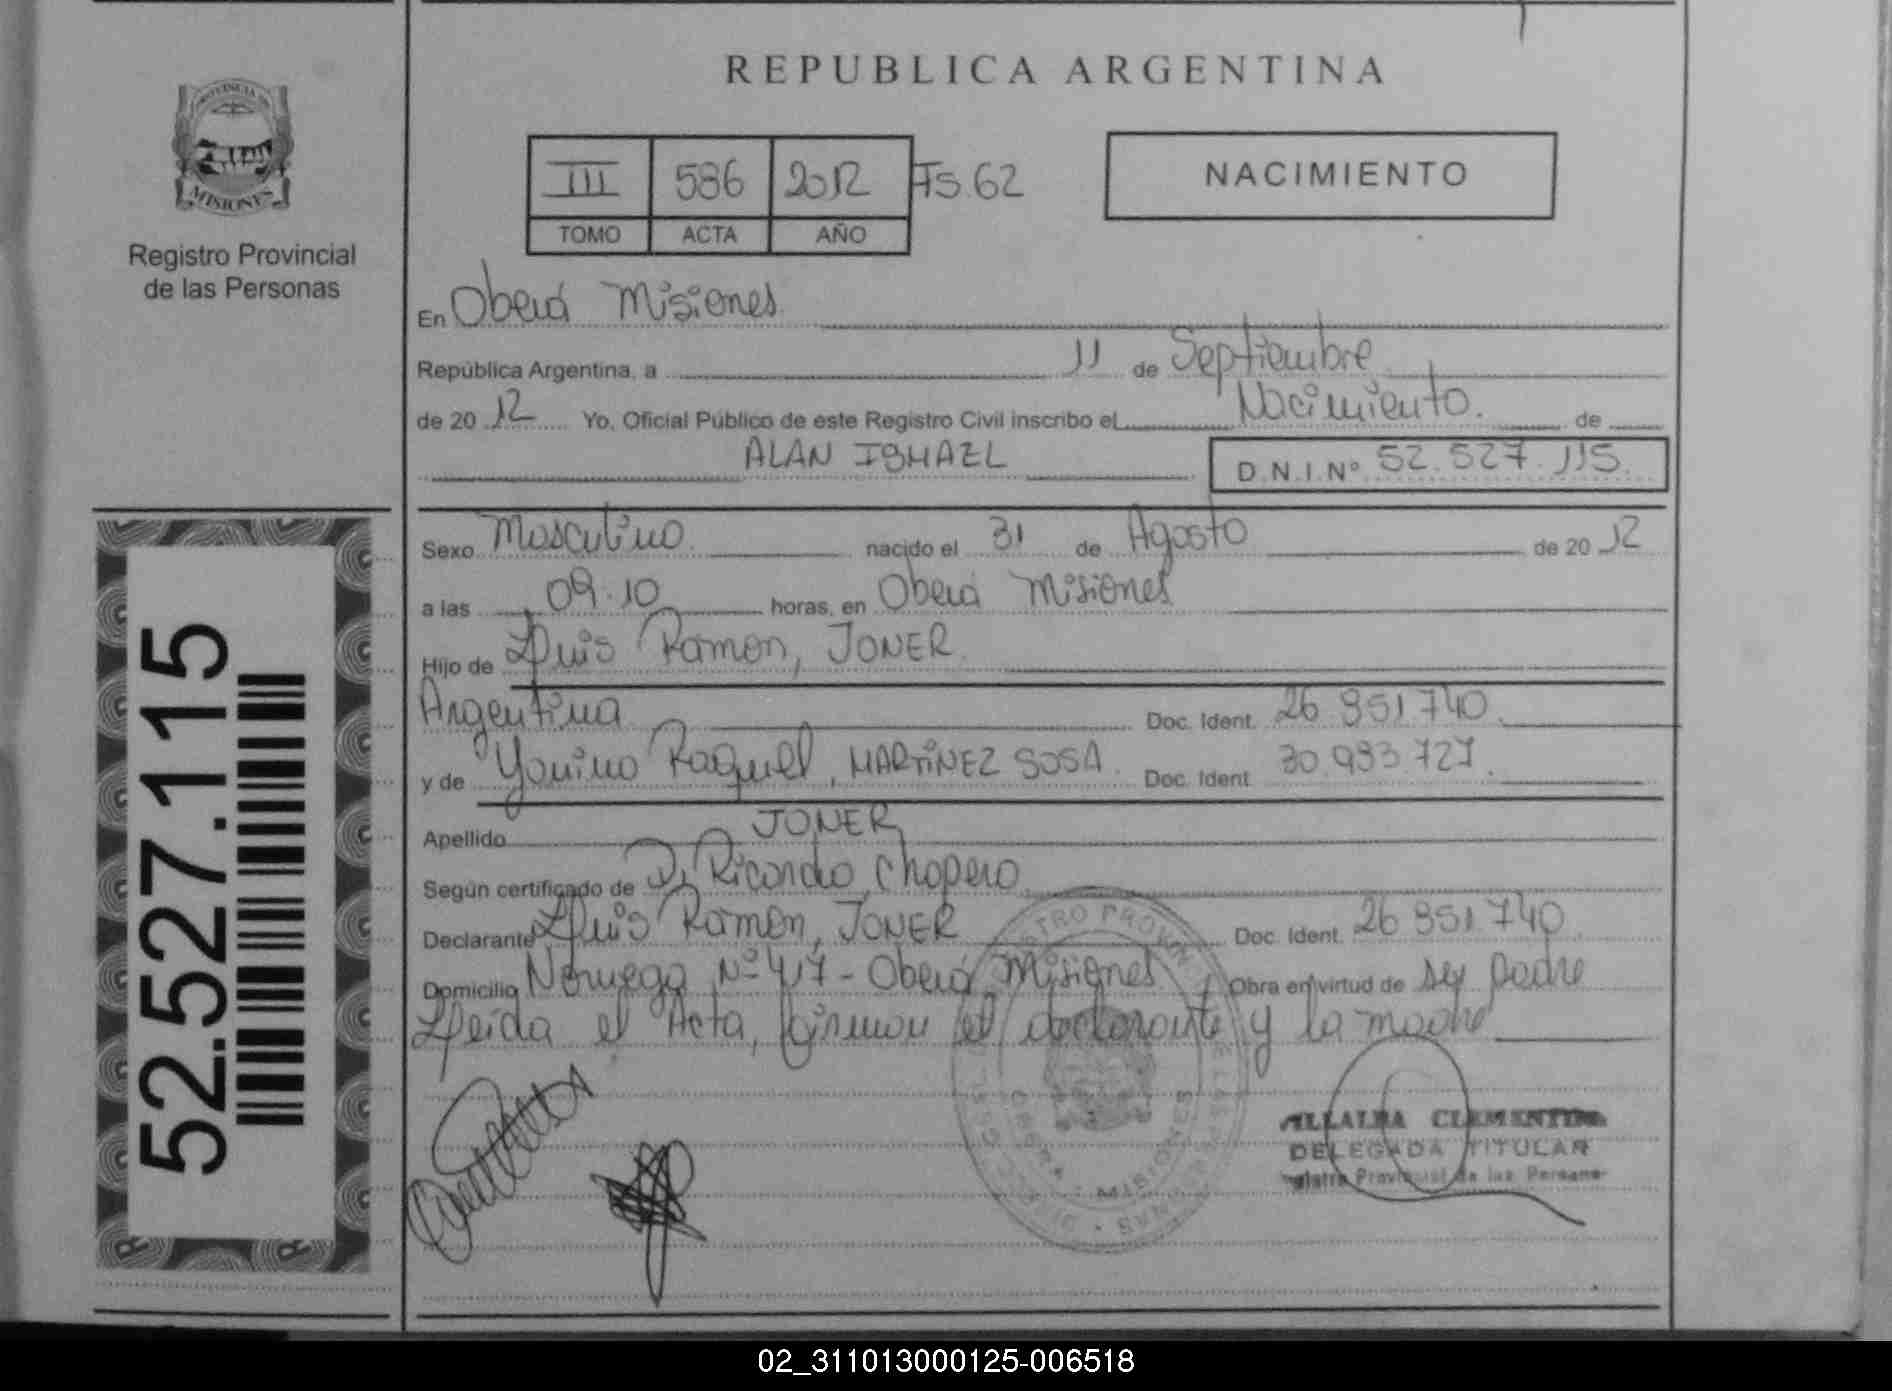 REPUBLICA ARGENTINA
PROVINCIA DE
MISIONES
Registro Provincial
de las Personas
III 586 2012 Fs. 62
TOMO ACTA AÑO
NACIMIENTO
En Oberá Misiones
República Argentina, a 11 de Septiembre
de 20 12 Yo, Oficial Público de este Registro Civil inscribo el Nacimiento. de
ALAN ISMAEL D.N.I.Nº 52.527.115.
Sexo Masculino nacido el 31 de Agosto de 20 12
a las 09.10 horas, en Oberá Misiones
Hijo de Luis Ramon, JONER.
Argentina Doc. Ident. 26.951.740.
y de Yanina Raquel, MARTINEZ SOSA. Doc. Ident 30.933.727.
Apellido JONER
Según certificado de D. Ricardo Chapero
Declarante Luis Ramon, JONER Doc. Ident. 26.951.740
Domicilio Noruega Nº 417 - Oberá Misiones Obra en virtud de ser padre
Leida el Acta, firman el declarante y la madre
CLEMENTINA
DELEGADA TITULAR
Provincial de las
MISIONES
52.527.115
02_311013000125-006518